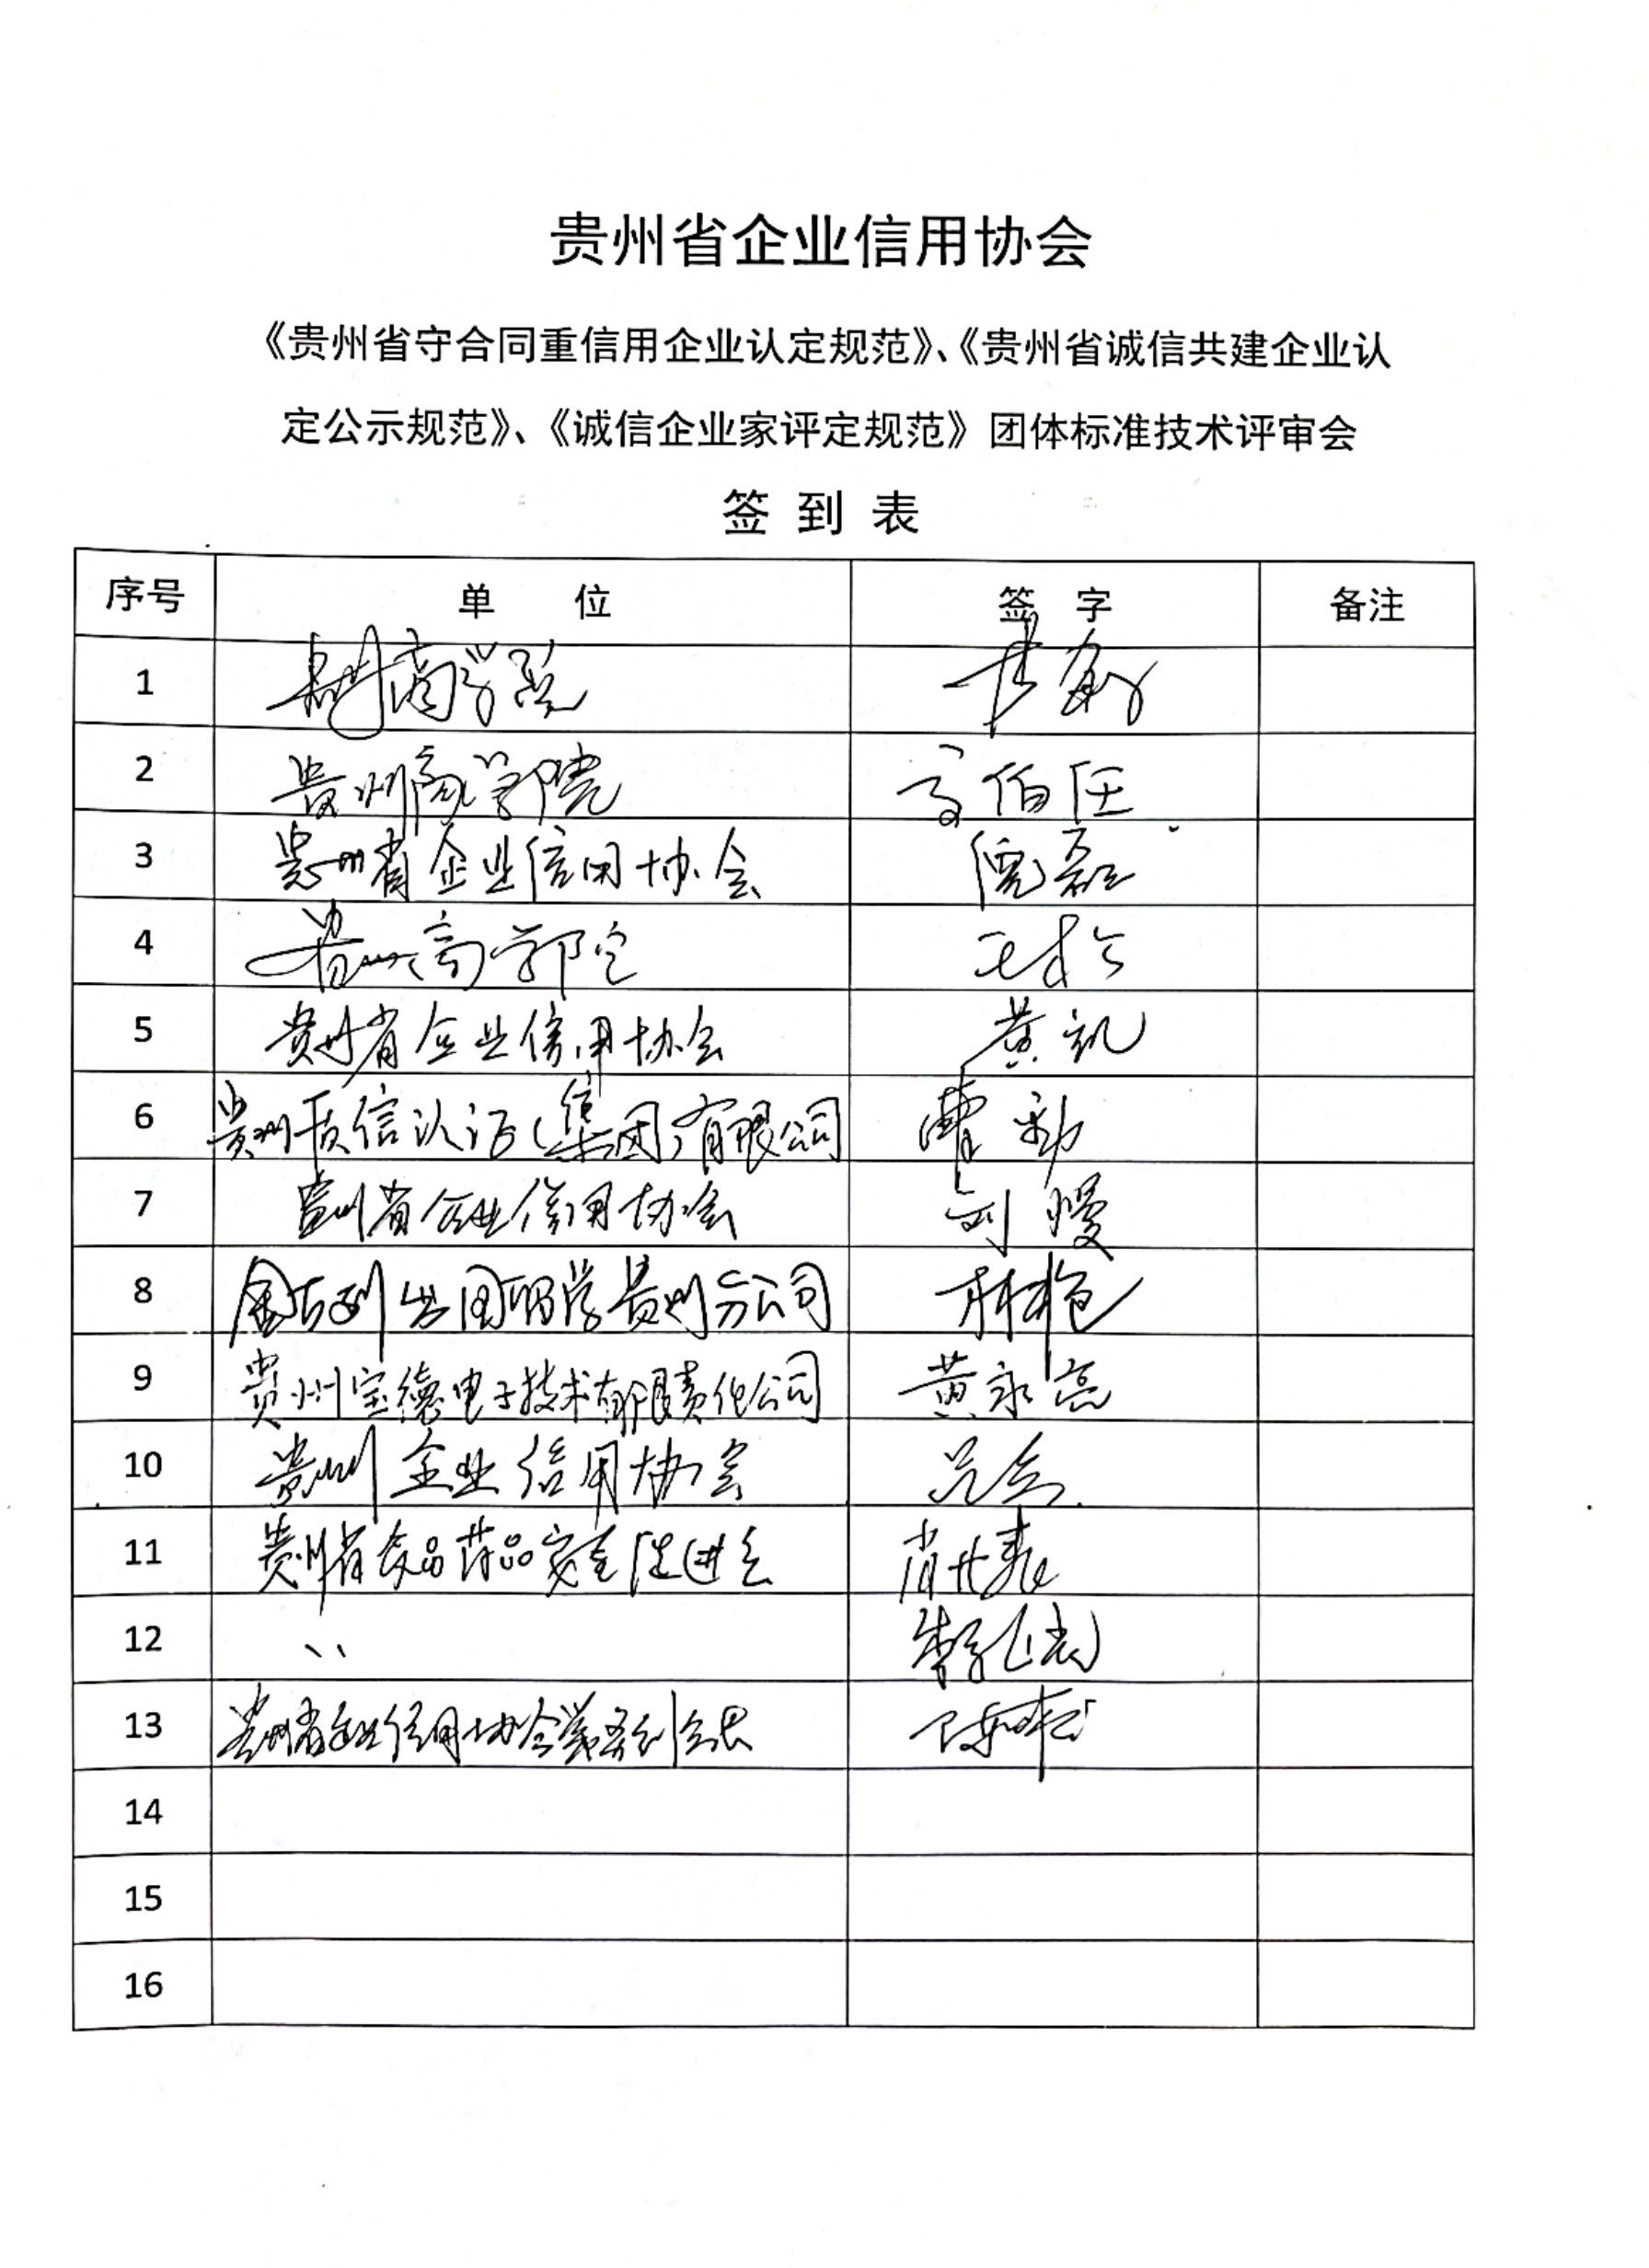 贵州省企业信用协会
《贵州省守合同重信用企业认定规范》、《贵州省诚信共建企业认
定公示规范》、《诚信企业家评定规范》团体标准技术评审会
签 到 表
序号 单 位 签 字 备注
1 贵州商学院
2 贵州商学院
3 贵州省企业信用协会 倪磊
4 贵州商学院
5 贵州省企业信用协会 黄凯
6 贵州质信认证(集团)有限公司 曹勁
7 贵州省企业信用协会 刘嫚
8 金吉列出国留学贵州分公司 林艳
9 贵州宝德电子技术有限责任公司 黄永亮
10 贵州企业信用协会
11 贵州省食品药品安全促进会
12 〃
13 贵州省企业信用协会常务副会长
14
15
16